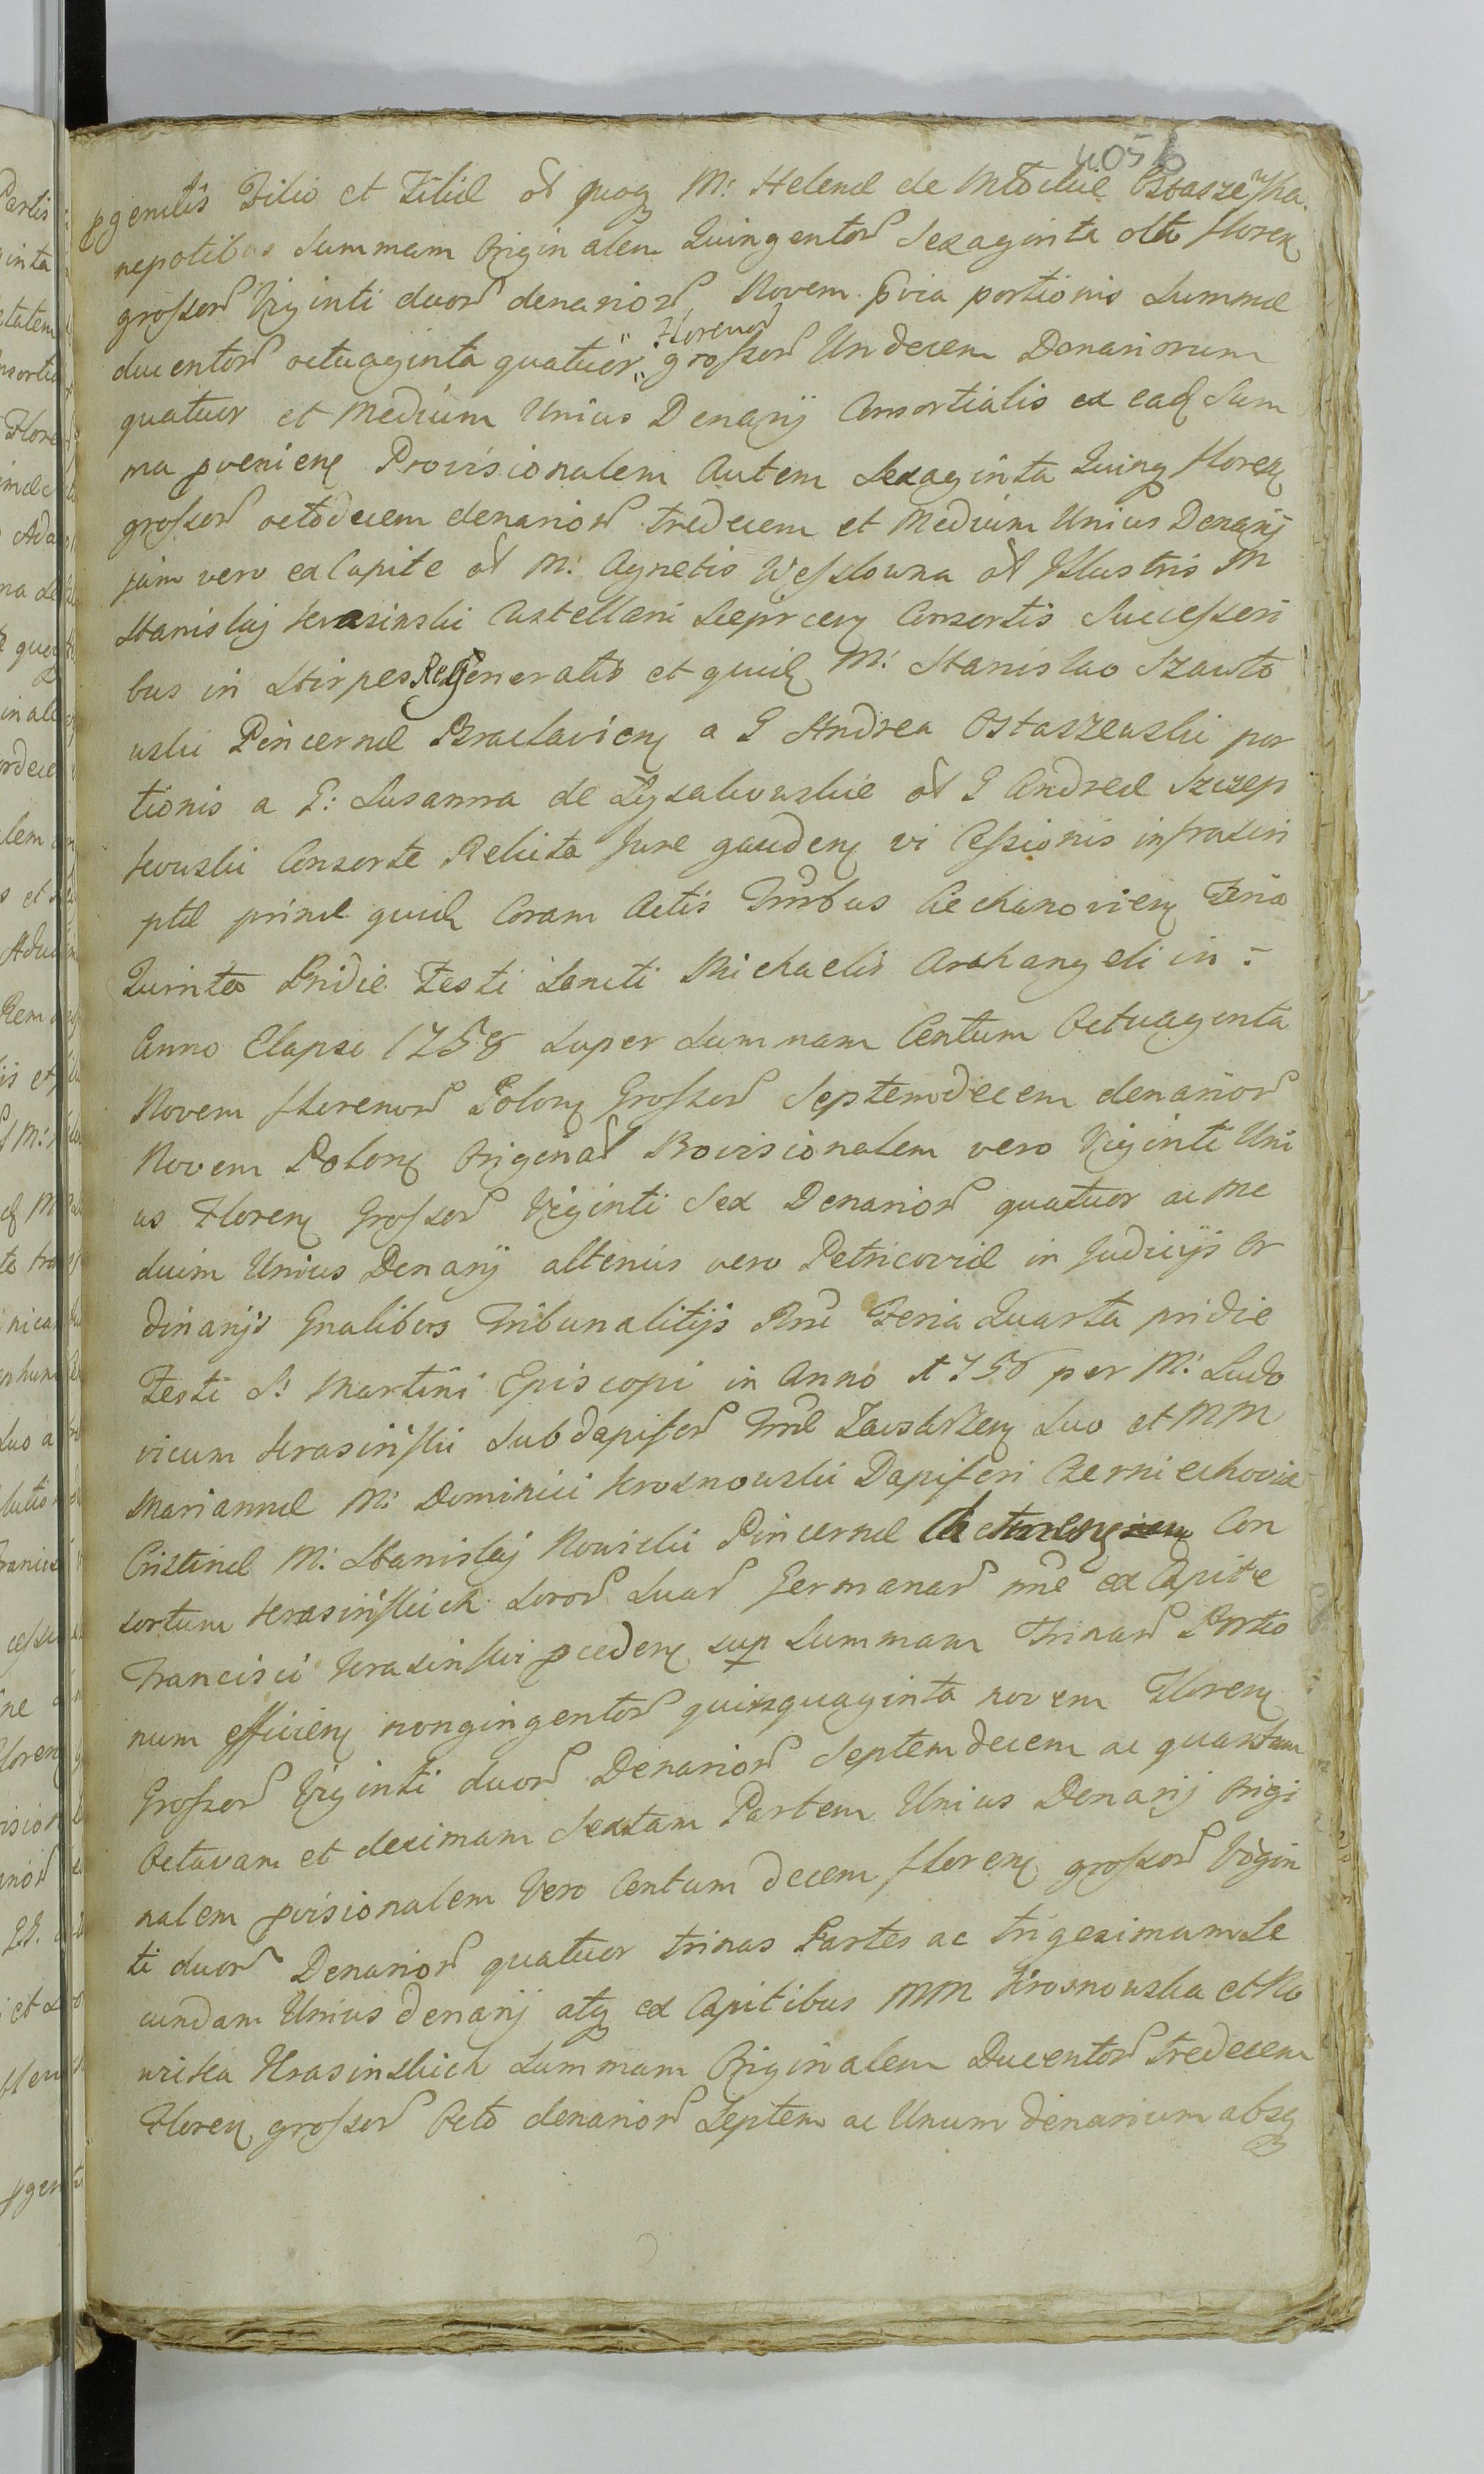 405
pgenitis Filio et Filiæ ol quoq M: Helenæ de Młockie Ostaszewska
nepotibus Summam Originalem Quingentor Sexaginta octo floren
grossor Viginti duor denarior Novem pvia portionis Summæ
ducentor octuaginta quatuor Florenor grossor Undecem Denariorum
quatuor et Medium Unius Denarij Consortialis ex ead Sum
ma pvenien Provisionalem Autem Sexaginta Quinq floren
grossor octodecem denarior tredecem et Medium Unius Denarij
jam vero ex Capite ol M: Agnetis Wesslowna ol Illustris M
Stanislaj Krasinski Castellani Sieprcen Consortis Successori
bus in Stirpes Regeneratis et quid M: Stanislao Szawło
wski Pincernæ Braclavien a G Andrea Ostaszewski por
tionis a G: Susanna de Łyzakowskie ol G Andreæ Szczep
kowski Consorte Relicta Jure gauden vi Cessionis infrascri
ptæ primæ quid Coram Actis Trribus Ciechanovien Feria
Quinta Pridie Festi Sancti Michaelis Archangeli in
Anno Elapso 1758 Super Summam Centum Octuaginta
Novem florenor Polon Grossor Septemdecem denarior
Novem Polon Original Provisionalem vero Viginti Uni
us Floren Grossor Viginti Sex Denarior quatuor ac Me
dium Unius Denarij alterius vero Petricoviæ in Judicijs Or
dinarijs Gnalibus Tribunalitijs Rni Feria Quarta pridie
Festi S: Martini Episcopi in Anno 1758 per M: Ludo
vicum Krasinski Subdapifer Trræ Zawskrzen Suo et MM
Mariannæ M: Dominici Krosnowski Dapiferi Czerniechovien
Cristinæ M: Stanislaj Nowicki Pincernæ Con
sortum Krasinskich Soror Suar Germanar nne ex Capite
Francisci Krasinski pceden sup Summam Trinar Portio
num efficien nongingentor quinquaginta novem Floren
Grossor Viginti duor Denarior Septemdecem ac quartam
Octavam et decimam Sextam Partem Unius Denarij Origi
nalem pvisionalem Vero Centum decem floren grossor Vigin
ti duor Denarior quatuor trinas Partes ac trigesimam Se
cundam Unius denarij atq ex Capitibus MM Krosnowska et No
wicka Krasinskich Summam Originalem Ducentor tredecem
Floren grossor Octo denarior Septem ac Unum denarium absq